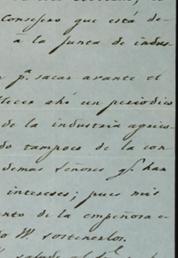 Consejero que está de-
a la Junta de indus-
pª. sacar avante el
lecer ahí un periodico
de la industria agríco-
do tampoco de la con-
demas Señores qᵉ. han
intereses; pues mis
nto de la empeñosa e-
o V. sostenerlos.